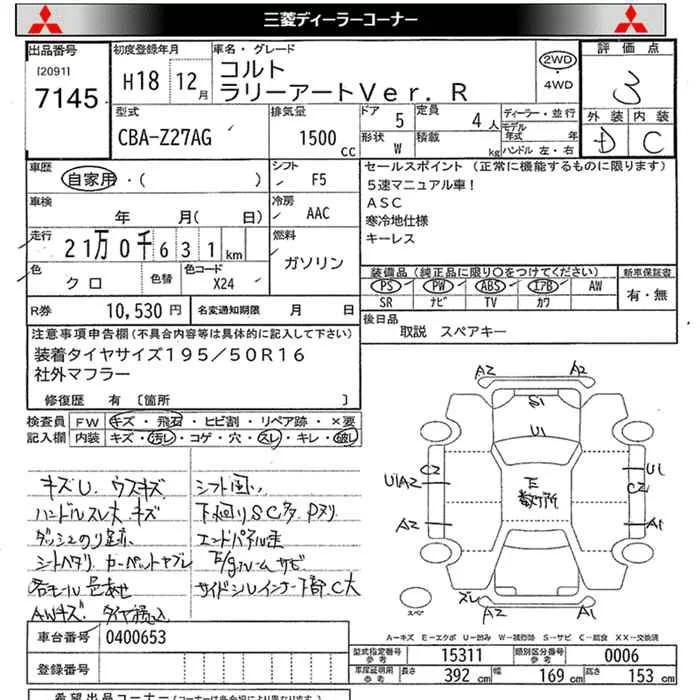 三菱ディーラーコーナー
出品番号
[2091]
7145
初度登録年月
H18 12月
車名・グレード
コルト
ラリーアートVer. R
2WD
・
4WD
評価点
3
外装 内装
D C
型式
CBA-Z27AG
排気量
1500 cc
ドア 5
定員 4人
形状 W
積載 kg
ディーラー・並行
モデル年式 年
ハンドル 左・右
車歴
自家用・( )
シフト
F5
セールスポイント (正常に機能するものに限ります)
5速マニュアル車!
ASC
寒冷地仕様
キーレス
車検
年 月( 日)
冷房
AAC
走行
21万0千631km
燃料
ガソリン
色
クロ
色替
色コード
X24
装備品(純正品に限り○をつけてください)
PS PW ABS エアB AW
SR ナビ TV カワ
新車保証書
有・無
R券 10,530円
名変通知期限 月 日
後日品
取説 スペアキー
注意事項申告欄(不具合内容等は具体的に記入して下さい)
装着タイヤサイズ195/50R16
社外マフラー
修復歴 有 [箇所 ]
検査員
記入欄
FW キズ・飛石・ヒビ割・リペア跡・×要
内装 キズ・汚レ・コゲ・穴・スレ・キレ・破レ
キズU. ウスキズ
ハンドルスレ大 キズ
ダッシュのり跡
シートヘタリ カーペットヤブレ
各モール色あせ
AWキズ
シフト固い
下廻りSC
エンドパネル歪
E/gルームサビ
サイドシルインナー下部C大
A2 A2
S1
U1
C2
U1A2
A2
U1
C2
A1
E
数ケ所
スペ
スレ
A2 A2
A-キズ E-エクボ U-凹み W-補修跡 S-サビ C-腐食 XX-交換済
車台番号 0400653
登録番号
型式指定番号
参考
15311
類別区分番号
参考
0006
車庫証明用
参考
長さ 392 cm 幅 169 cm 高さ 153 cm
希望出品コーナー